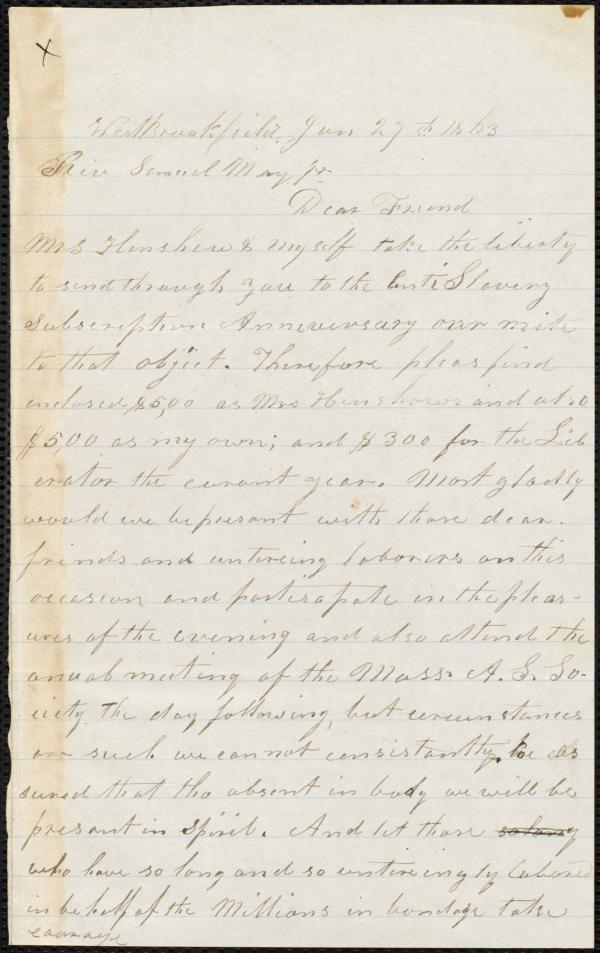 X
West Brookfield, Jan 27th 1863
Rev Samuel May, Jr.
Dear Friend
Mrs Henshaw & myself take the liberty
to send through you to the Anti Slavery
Subscription Anniversary our mite
to that object. Therefore pleas find
enclosed $5,00 as Mrs Henshaws and also
$5,00 as my own; and $300 for the Lib
erator the curant year. Most gladly
would we be presant with those dear
frinds and untireing laborers on this
occasion and partisapate in the pleas-
ures of the evening and also attend the
anual meeting of the Mass. A. S. So-
ciety. The day following, but circumstances
are such we can not consistantly. be as
sured that tho absent in body we will be
presant in Spirit. And let those
who have so long and so untireingly labored
in behalf of the Millions in bondage take
courage